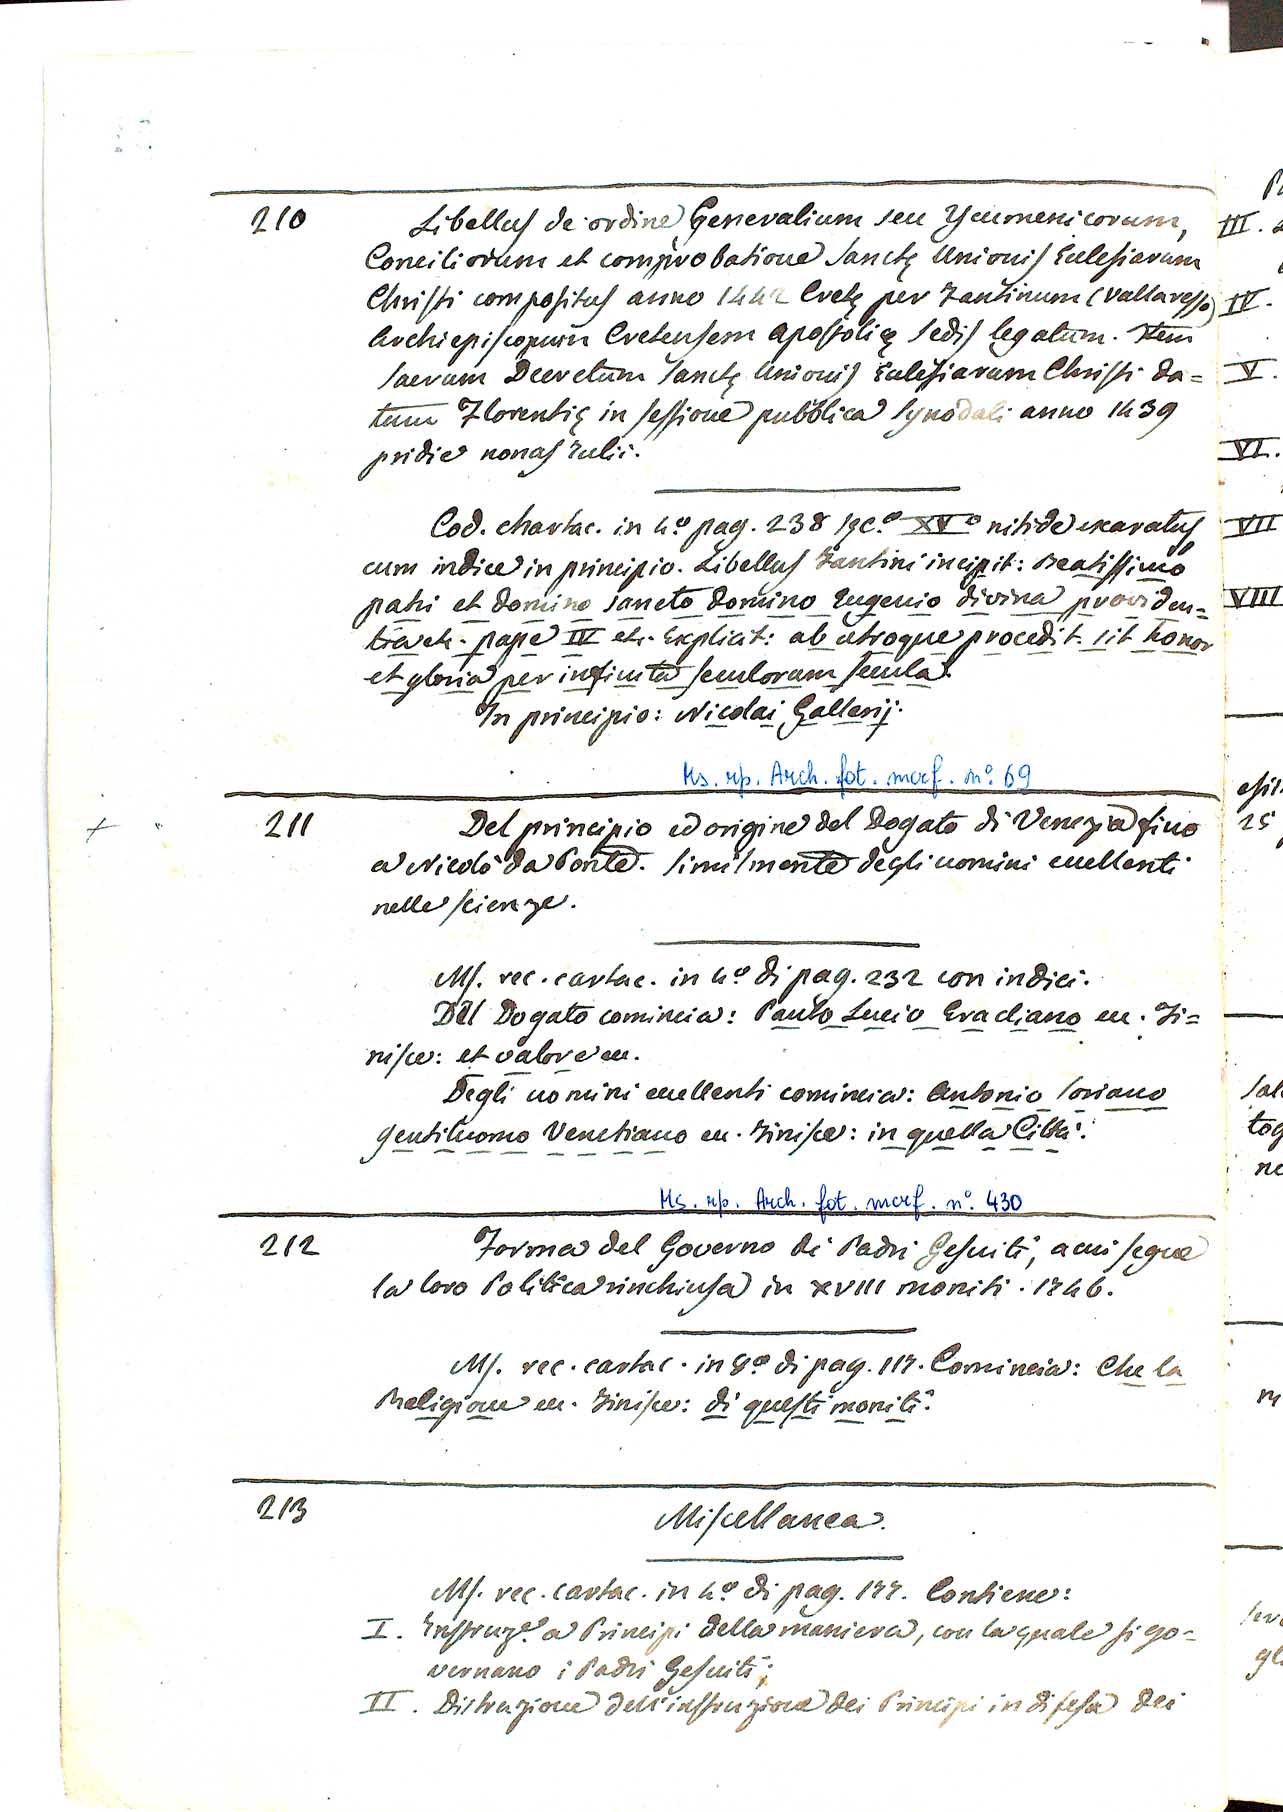 210
Libellus de ordine Generalium seu Ycumenicorum,
Conciliorum et comprobatione Sanctę Unionis Eclesiarum
Christi compositus anno 1442 Cretę per Fantinum (Vallaresso)
Archiepiscopum Cretensem Apostolicę Sedis legatum. Item
Sacrum Decretum Sanctę Unionis Eclesiarum Christi da=
tum Florentię in sessione pubblica Synodali anno 1439
pridie nonas Iulii.
Cod. chartac. in 4º pag. 238 sęc.º XVº nitide exaratus
cum indice in principio. Libellus Fantini incipit: Beatissimo
patri et domino sancto domino Eugenio divina providen=
tia etc. pape IV etc. Explicit: ab utroque procedit sit honor
et gloria per infinita seculorum secula.
In principio: Nicolai Gallerij.
Ms. rp. Arch. fot. marf. nº. 69
+ 211
Del principio ed origine del Dogato di Venezia fino
a Nicolò da Ponte. Similmente degli uomini eccellenti
nelle scienze.
Ms. rec. cartac. in 4º di pag. 232 con indici.
Del Dogato comincia: Paulo Lucio Eracliano ec. Fi=
nisce: et valore ec.
Degli uomini eccellenti comincia: Antonio Soriano
gentiluomo Venetiano ec. Finisce: in quella Città.
Ms. rp. Arch. fot. marf. nº. 430
212
Forma del Governo di Padri Gesuiti, a cui segue
la loro Politica rinchiusa in XVIII moniti. 1746.
Ms. rec. cartac. in 8º di pag. 117. Comincia: Che la
Religione ec. Finisce: di questi moniti.
213
Miscellanea.
Ms. rec. cartac. in 4º di pag. 177. Contiene:
I. Instruze. a Principi della maniera, con la quale si go=
vernano i Padri Gesuiti;
II. Distruzione dell'instruzione dei Principi in difesa dei
III.
IV.
V.
VI.
VII
VIII
25